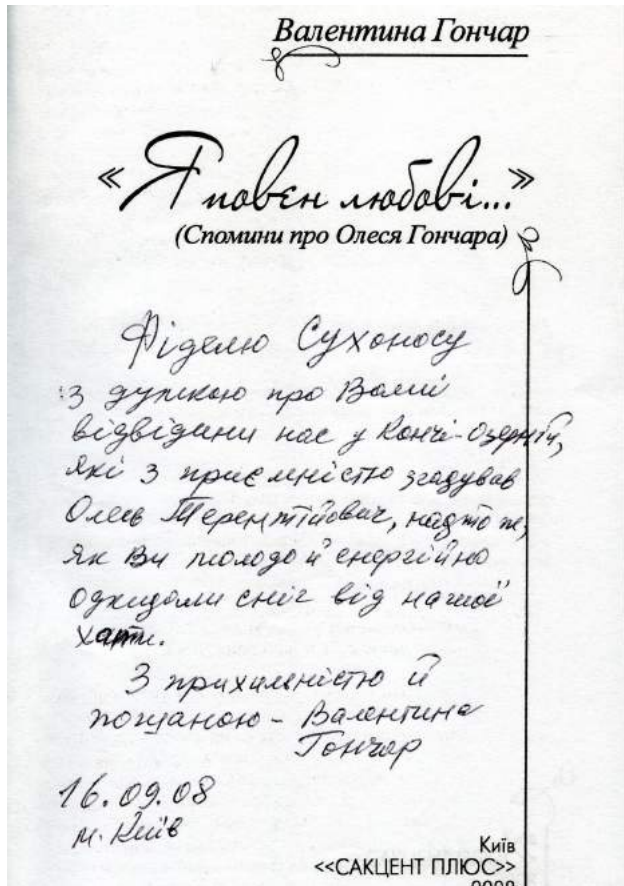 Валентина Гончар
«Я повєн любові...»
(Спомини про Олеся Гончара)
Фіделю Сухоносу
з думкою про Ваші
відвідини нас у Кончі-Озерній,
які з приємністю згадував
Олесь Терентійович, надто те,
як Ви молодо й енергійно
одкидали сніг від нашої
хати.
З прихильністю й
пошаною – Валентина
Гончар
16.09.08
м. Київ
Київ
<<САКЦЕНТ ПЛЮС>>